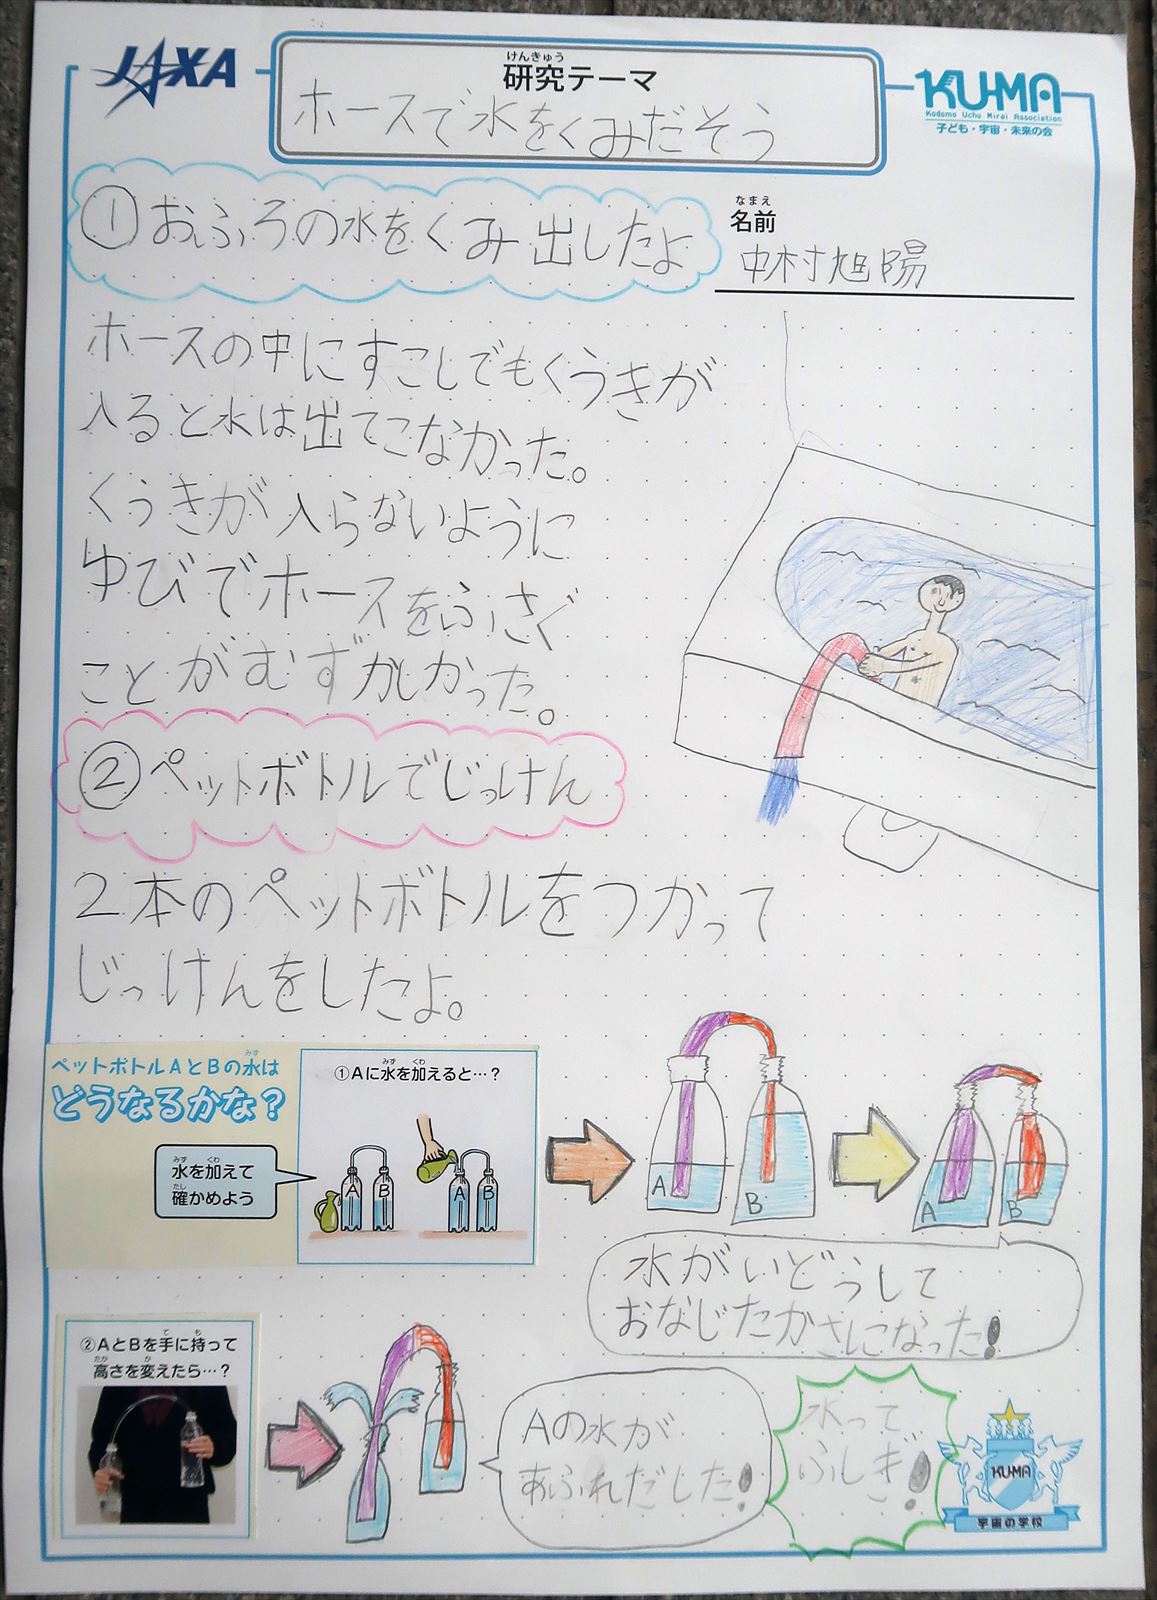 JAXA
けんきゅう
研究テーマ
ホースで水をくみだそう
KU-MA
Kodomo Uchu Mirai Association
子ども・宇宙・未来の会
①おふろの水をくみ出したよ
なまえ
名前
中村旭陽
ホースの中にすこしでもくうきが
入ると水は出てこなかった。
くうきが入らないように
ゆびでホースをふさぐ
ことがむずかしかった。
②ペットボトルでじっけん
2本のペットボトルをつかって
じっけんをしたよ。
みず
ペットボトルAとBの水は
どうなるかな?
みず くわ
水を加えて
たし
確かめよう
みず くわ
①Aに水を加えると…?
A B
A B
A B
A B
水がいどうして
おなじたかさになった!
て も
②AとBを手に持って
たか か
高さを変えたら…?
Aの水が
あふれだした!
水って
ふしぎ!
KU-MA
宇宙の学校